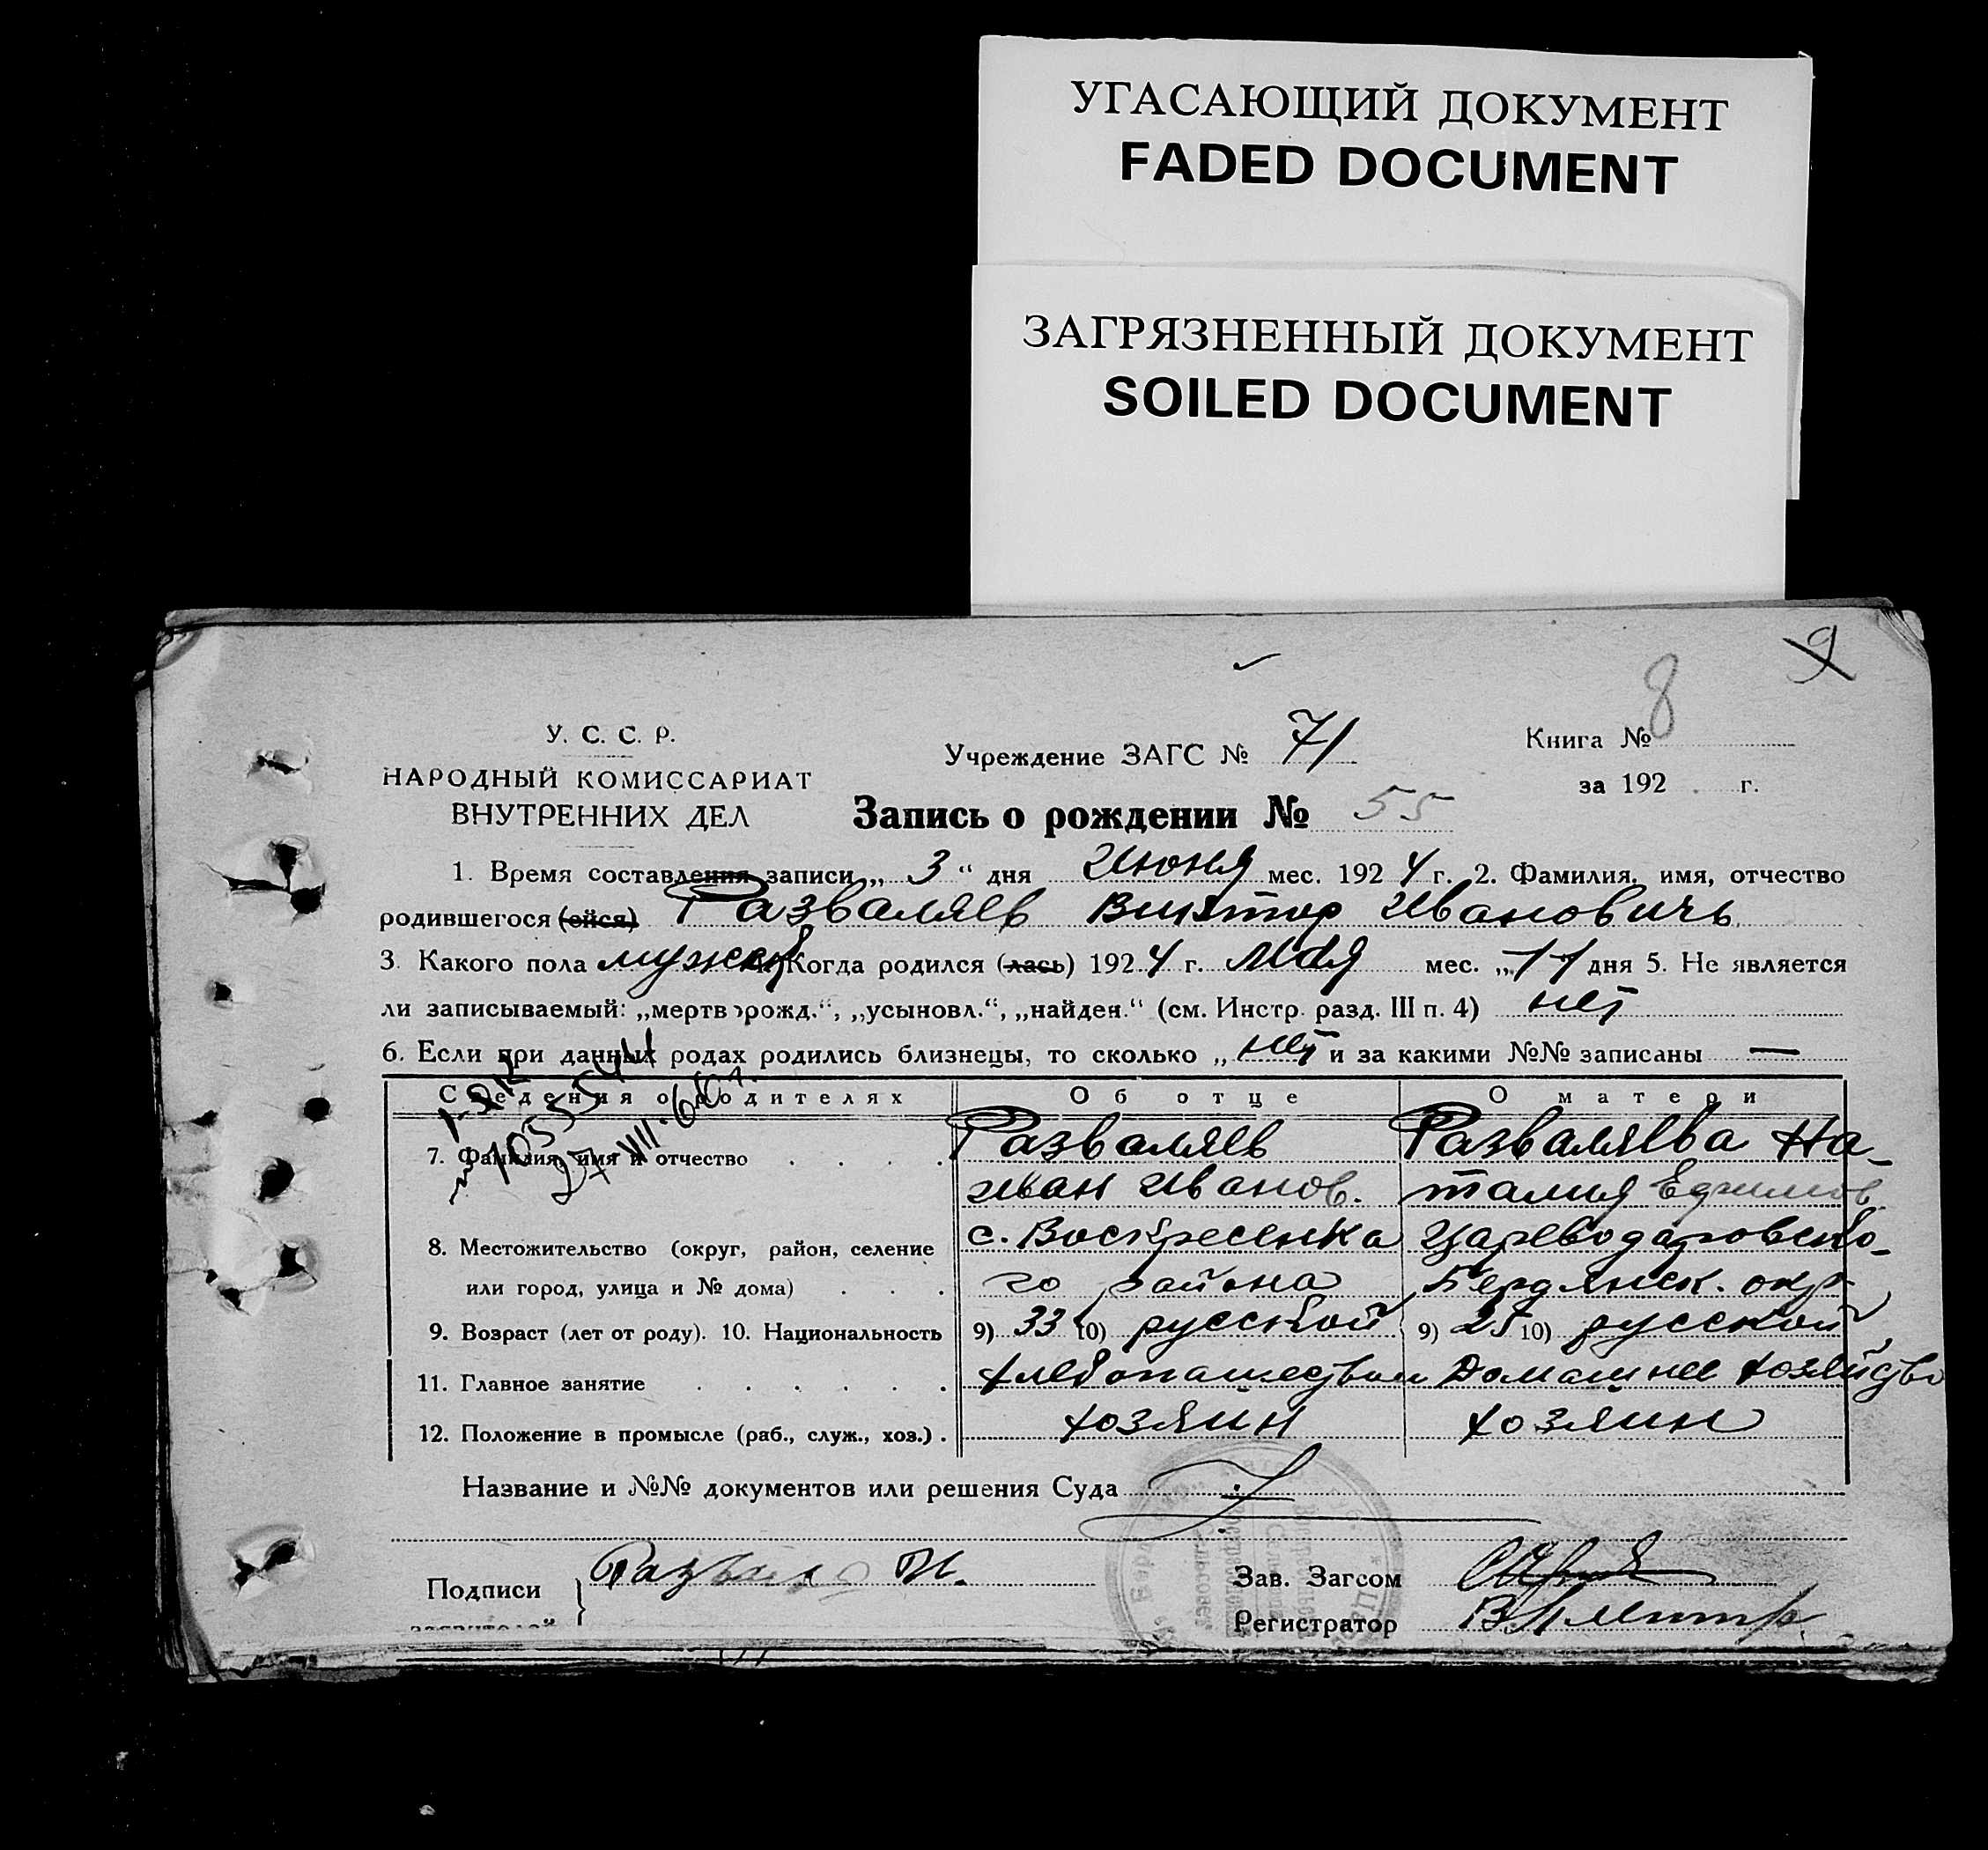 УГАСАЮЩИЙ ДОКУМЕНТ
FADED DOCUMENT
ЗАГРЯЗНЕННЫЙ ДОКУМЕНТ
SOILED DOCUMENT
9
8
У. С. С. Р.
НАРОДНЫЙ КОМИССАРИАТ
ВНУТРЕННИХ ДЕЛ
Учреждение ЗАГС № 71
Книга №
за 192 г.
Запись о рождении № 55
1. Время составления записи „ 3 “ дня Июня мес. 1924 г. 2. Фамилия, имя, отчество
родившегося (ейся) Разваляев Виктор Ивановичь
3. Какого пола мужск Когда родился (лась) 1924 г. Мая мес. „11 дня 5. Не является
ли записываемый: „мертворожд.“, „усыновл.“, „найден.“ (см. Инстр. разд. III п. 4) нет
6. Если при данных родах родились близнецы, то сколько „ нет и за какими №№ записаны —
Сведения о родителях Об отце О матери
7. Фамилия, имя и отчество . . . . Разваляев Разваляева На-
Иван Иванов. талия Ефимов
8. Местожительство (округ, район, селение с. Воскресенка Цареводаровско-
или город, улица и № дома) . . . го района Бердянск. окр
9. Возраст (лет от роду). 10. Национальность 9) 33 10) русской 9) 25 10) русской
11. Главное занятие . . . . . . хлебопашеством Домашнее хозяйство
12. Положение в промысле (раб., служ., хоз.) . хозяин хозяин
Название и №№ документов или решения Суда
Подписи } Зав. Загсом
Регистратор